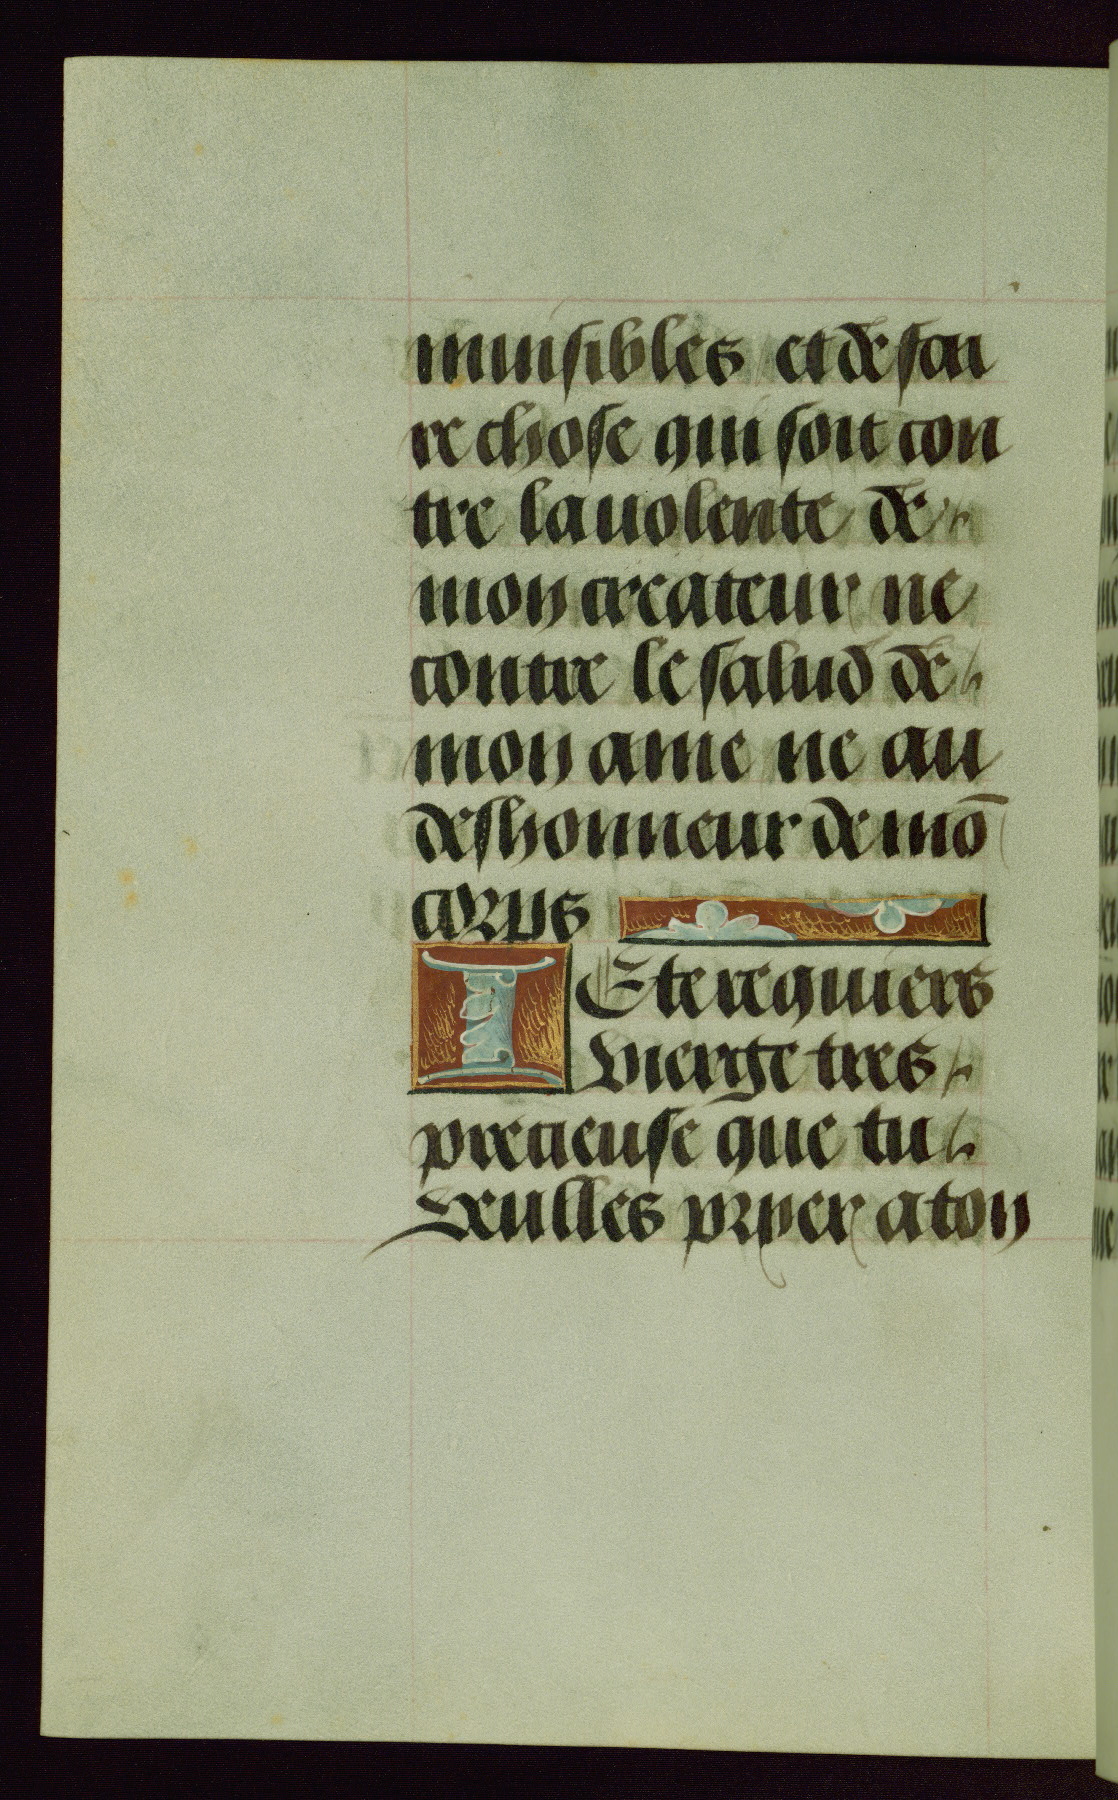 inuisibles et de fai
re chose qui soit con
tre la uolente de
mon createur ne
contre le salud de
mon ame ne au
deshonneur de mō
corps
IE te requiers
vierge tres
precieuse que tu
veulles pryer a ton